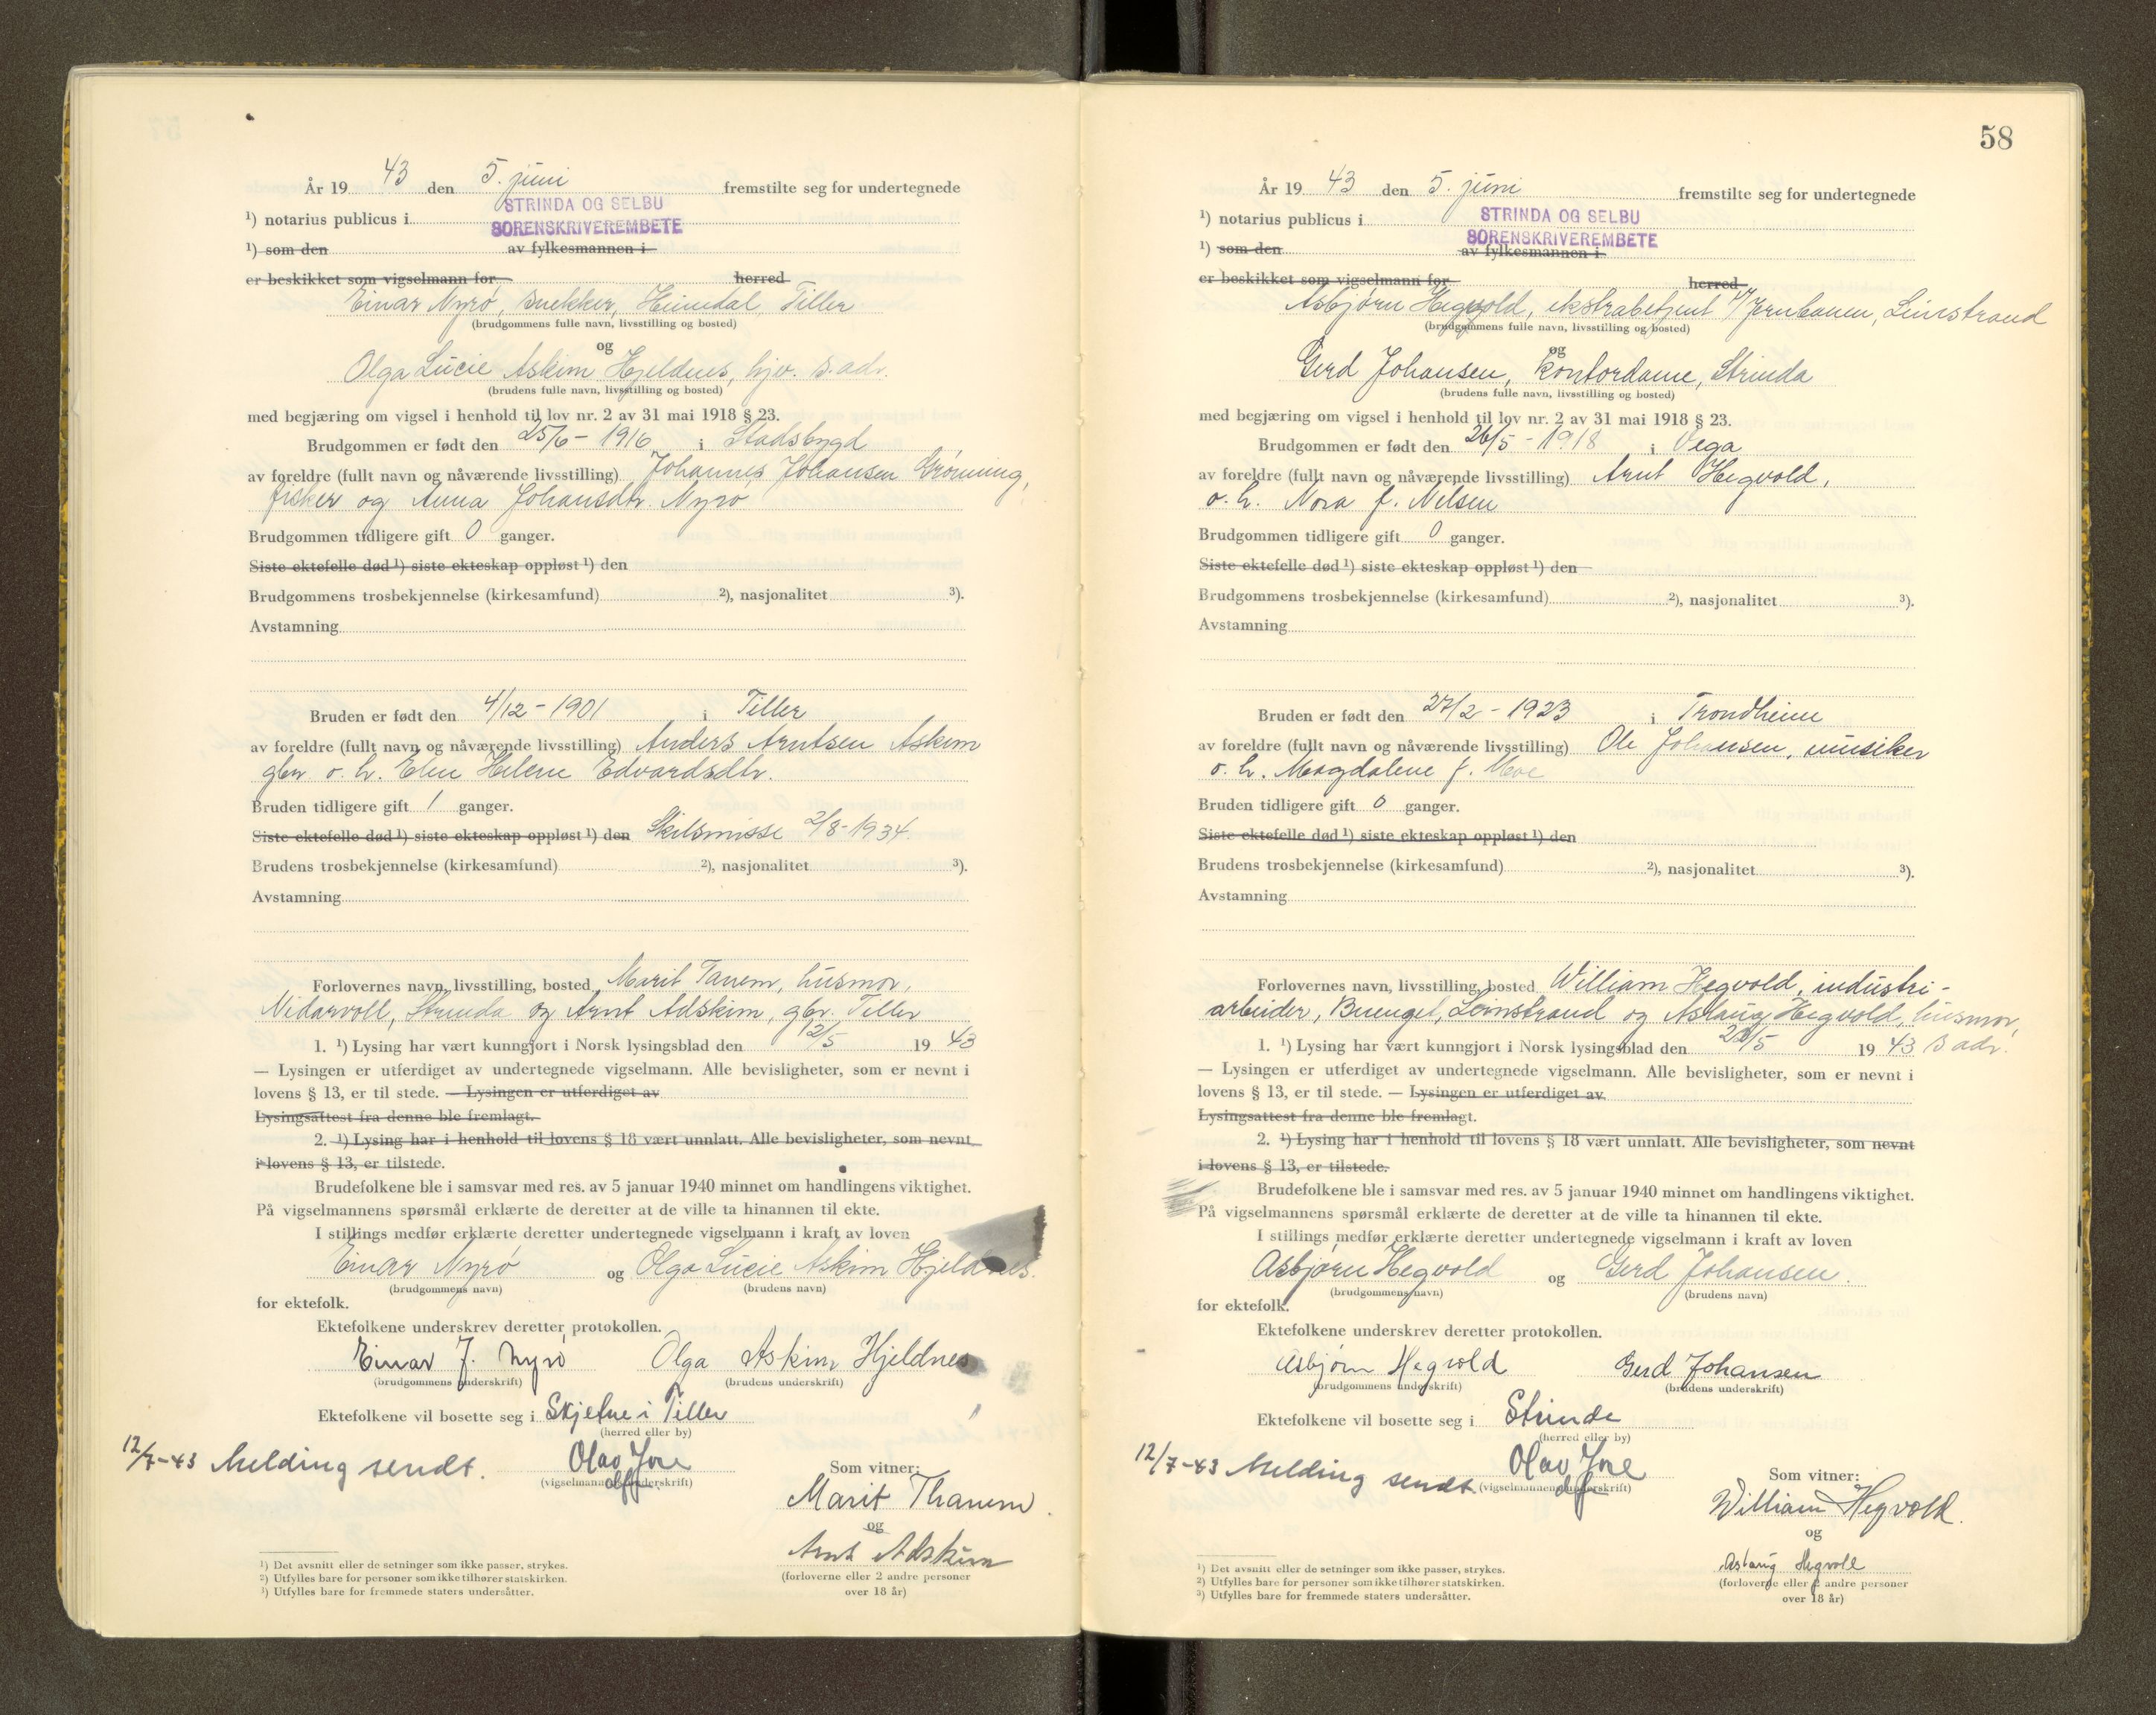 År 19 43 den 5. juni fremstilte seg for undertegnede
¹) notarius publicus i STRINDA OG SELBU
SORENSKRIVEREMBETE
¹) som den av fylkesmannen i
er beskikket som vigselmann for herred
Einar Nyrø, snekker, Heimdal, Tiller
(brudgommens fulle navn, livsstilling og bosted)
og
Olga Lucie Askim Hjeldnes, hjv. s. adr.
(brudens fulle navn, livsstilling og bosted)
med begjæring om vigsel i henhold til lov nr. 2 av 31 mai 1918 § 23.
Brudgommen er født den 25/6 - 1916 i Stadsbygd
av foreldre (fullt navn og nåværende livsstilling) Johannes Johansen Grønning,
fisker og Anna Johansdtr. Nyrø
Brudgommen tidligere gift 0 ganger.
Siste ektefelle død ¹) siste ekteskap oppløst ¹) den
Brudgommens trosbekjennelse (kirkesamfund) ²), nasjonalitet ³).
Avstamning
Bruden er født den 4/12 - 1901 i Tiller
av foreldre (fullt navn og nåværende livsstilling) Anders Arntsen Askim
gbr. o. h. Elen Helene Edvardsdtr.
Bruden tidligere gift 1 ganger.
Siste ektefelle død ¹) siste ekteskap oppløst ¹) den Skilsmisse 2/8-1934.
Brudens trosbekjennelse (kirkesamfund) ²), nasjonalitet ³).
Avstamning
Forlovernes navn, livsstilling, bosted Marit Tanem, husmor,
Nidarvoll, Strinda og Arnt Adskim, gbr. Tiller
1. ¹) Lysing har vært kunngjort i Norsk lysingsblad den 12/5 19 43
— Lysingen er utferdiget av undertegnede vigselmann. Alle bevisligheter, som er nevnt i
lovens § 13, er til stede. — Lysingen er utferdiget av
Lysingsattest fra denne ble fremlagt.
2. ¹) Lysing har i henhold til lovens § 18 vært unnlatt. Alle bevisligheter, som nevnt
i lovens § 13, er tilstede.
Brudefolkene ble i samsvar med res. av 5 januar 1940 minnet om handlingens viktighet.
På vigselmannens spørsmål erklærte de deretter at de ville ta hinannen til ekte.
I stillings medfør erklærte deretter undertegnede vigselmann i kraft av loven
Einar Nyrø og Olga Lucie Askim Hjeldnes.
(brudgommens navn) (brudens navn)
for ektefolk.
Ektefolkene underskrev deretter protokollen.
Einar J. Nyrø Olga Askim Hjeldnes
(brudgommens underskrift) (brudens underskrift)
Ektefolkene vil bosette seg i Skjetne i Tiller
(herred eller by)
12/7-43 Melding sendt. Olav Jore
(vigselmannens underskrift)
Som vitner:
Marit Thanem.
og
Arnt Adskim
(forloverne eller 2 andre personer
over 18 år)
¹) Det avsnitt eller de setninger som ikke passer, strykes.
²) Utfylles bare for personer som ikke tilhører statskirken.
³) Utfylles bare for fremmede staters undersåtter.
58
År 19 43 den 5. juni fremstilte seg for undertegnede
¹) notarius publicus i STRINDA OG SELBU
SORENSKRIVEREMBETE
¹) som den av fylkesmannen i
er beskikket som vigselmann for herred
Asbjørn Hegvold, ekstrabetjent v/ Jernbanen, Leinstrand
(brudgommens fulle navn, livsstilling og bosted)
og
Gerd Johansen, kontordame, Strinda
(brudens fulle navn, livsstilling og bosted)
med begjæring om vigsel i henhold til lov nr. 2 av 31 mai 1918 § 23.
Brudgommen er født den 26/5 - 1918 i Vega
av foreldre (fullt navn og nåværende livsstilling) Arnt Hegvold,
o. h. Nora f. Nelsen
Brudgommen tidligere gift 0 ganger.
Siste ektefelle død ¹) siste ekteskap oppløst ¹) den
Brudgommens trosbekjennelse (kirkesamfund) ²), nasjonalitet ³).
Avstamning
Bruden er født den 27/2 - 1923 i Trondheim
av foreldre (fullt navn og nåværende livsstilling) Ole Johansen, musiker
o. h. Magdalene f. Moe
Bruden tidligere gift 0 ganger.
Siste ektefelle død ¹) siste ekteskap oppløst ¹) den
Brudens trosbekjennelse (kirkesamfund) ²), nasjonalitet ³).
Avstamning
Forlovernes navn, livsstilling, bosted William Hegvold, industri-
arbeider, Leinstrand og Aslaug Hegvold, husmor,
1. ¹) Lysing har vært kunngjort i Norsk lysingsblad den 19 43 s adr.
— Lysingen er utferdiget av undertegnede vigselmann. Alle bevisligheter, som er nevnt i
lovens § 13, er til stede. — Lysingen er utferdiget av
Lysingsattest fra denne ble fremlagt.
2. ¹) Lysing har i henhold til lovens § 18 vært unnlatt. Alle bevisligheter, som nevnt
i lovens § 13, er tilstede.
Brudefolkene ble i samsvar med res. av 5 januar 1940 minnet om handlingens viktighet.
På vigselmannens spørsmål erklærte de deretter at de ville ta hinannen til ekte.
I stillings medfør erklærte deretter undertegnede vigselmann i kraft av loven
Asbjørn Hegvold og Gerd Johansen.
(brudgommens navn) (brudens navn)
for ektefolk.
Ektefolkene underskrev deretter protokollen.
Asbjørn Hegvold Gerd Johansen
(brudgommens underskrift) (brudens underskrift)
Ektefolkene vil bosette seg i Strinda
(herred eller by)
12/7-43 Melding sendt. Olav Jore
(vigselmannens underskrift)
Som vitner:
William Hegvold.
og
Aslaug Hegvold
(forloverne eller 2 andre personer
over 18 år)
¹) Det avsnitt eller de setninger som ikke passer, strykes.
²) Utfylles bare for personer som ikke tilhører statskirken.
³) Utfylles bare for fremmede staters undersåtter.